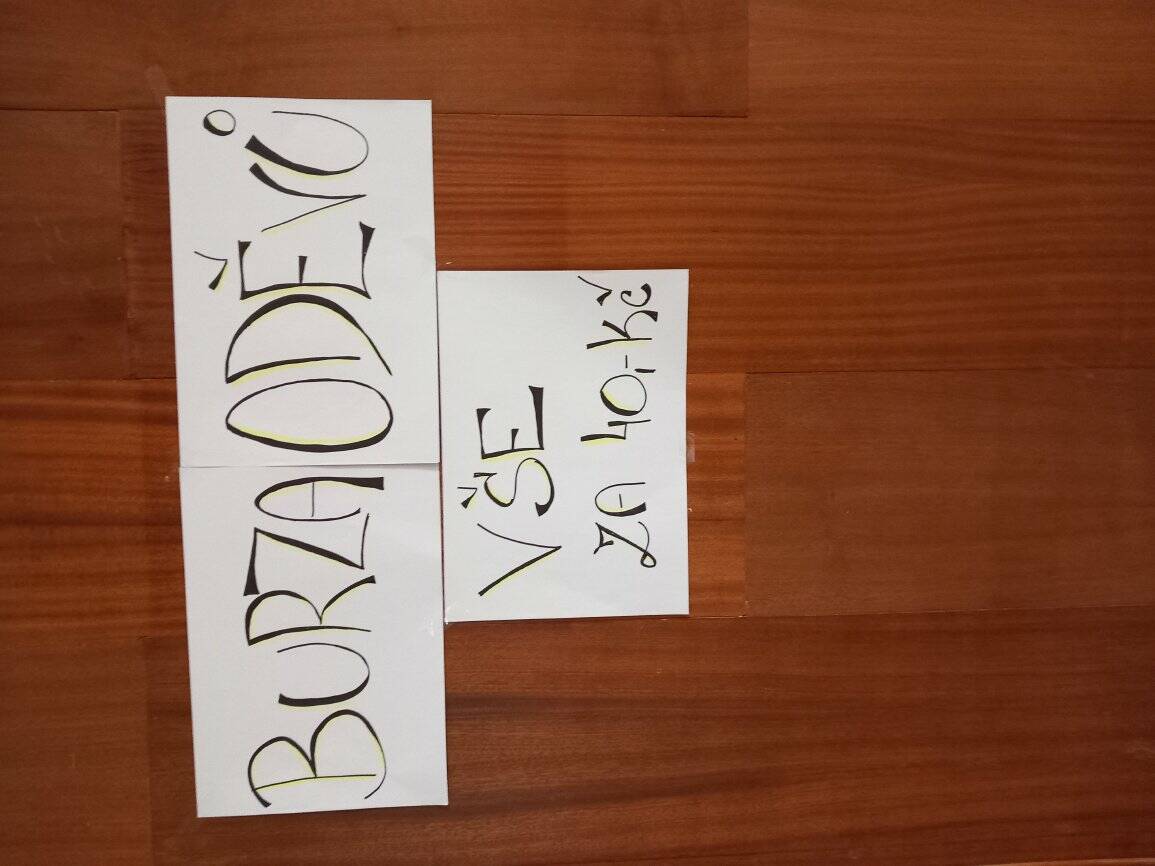 BURZA ODĚVŮ
VŠE
ZA 40,-Kč